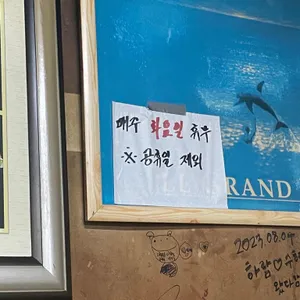 매주 화요일 휴무
※ 공휴일 제외
RAND
2023.08.04
하람♡수
왔다